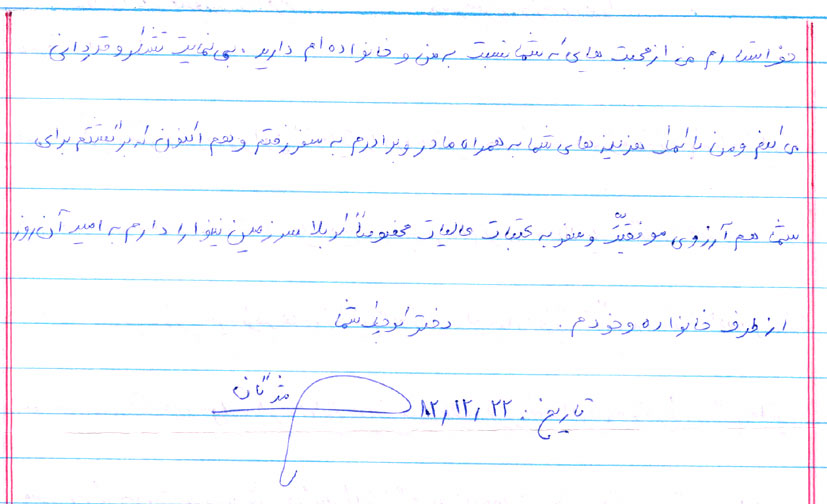 خواستارم من از محبت هایی که شما نسبت به من و خانواده ام دارید، بی نهایت تشکر و قدردانی
می کنم و من با کمک هزینه های شما به همراه مادر و برادرم به سفر رفتم و هم اکنون که برگشتم برای
شما هم آرزوی موفقیّت و سفر به عتبات عالیات مخصوصاً کربلا سرزمین نینوا را دارم به امید آن روز
از طرف خانواده و خودم. دختر کوچک شما
مژگان
تاریخ: ۸۲,۱۲,۲۲